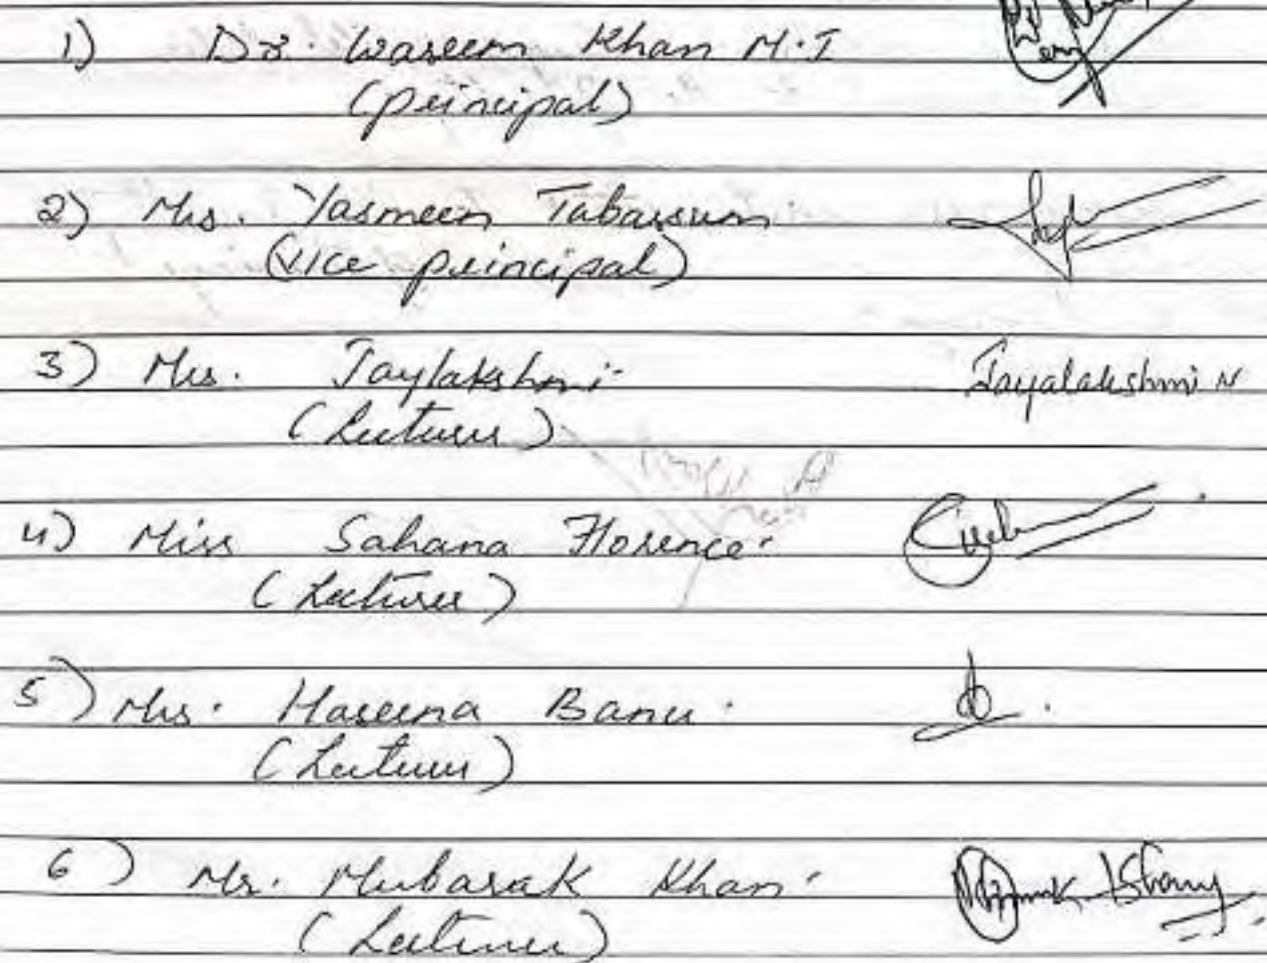 1) Dr. Waseem Khan M.I
(principal)
2) Mrs. Yasmeen Tabassum.
(Vice principal)
3) Mrs. Jaylakshmi. Jayalakshmi N
(Lecturer)
4) Miss Sahana Florence.
(Lecturer)
5) Mrs. Haseena Banu.
(Lecturer)
6) Mr. Mubarak Khan.
(Lecturer)